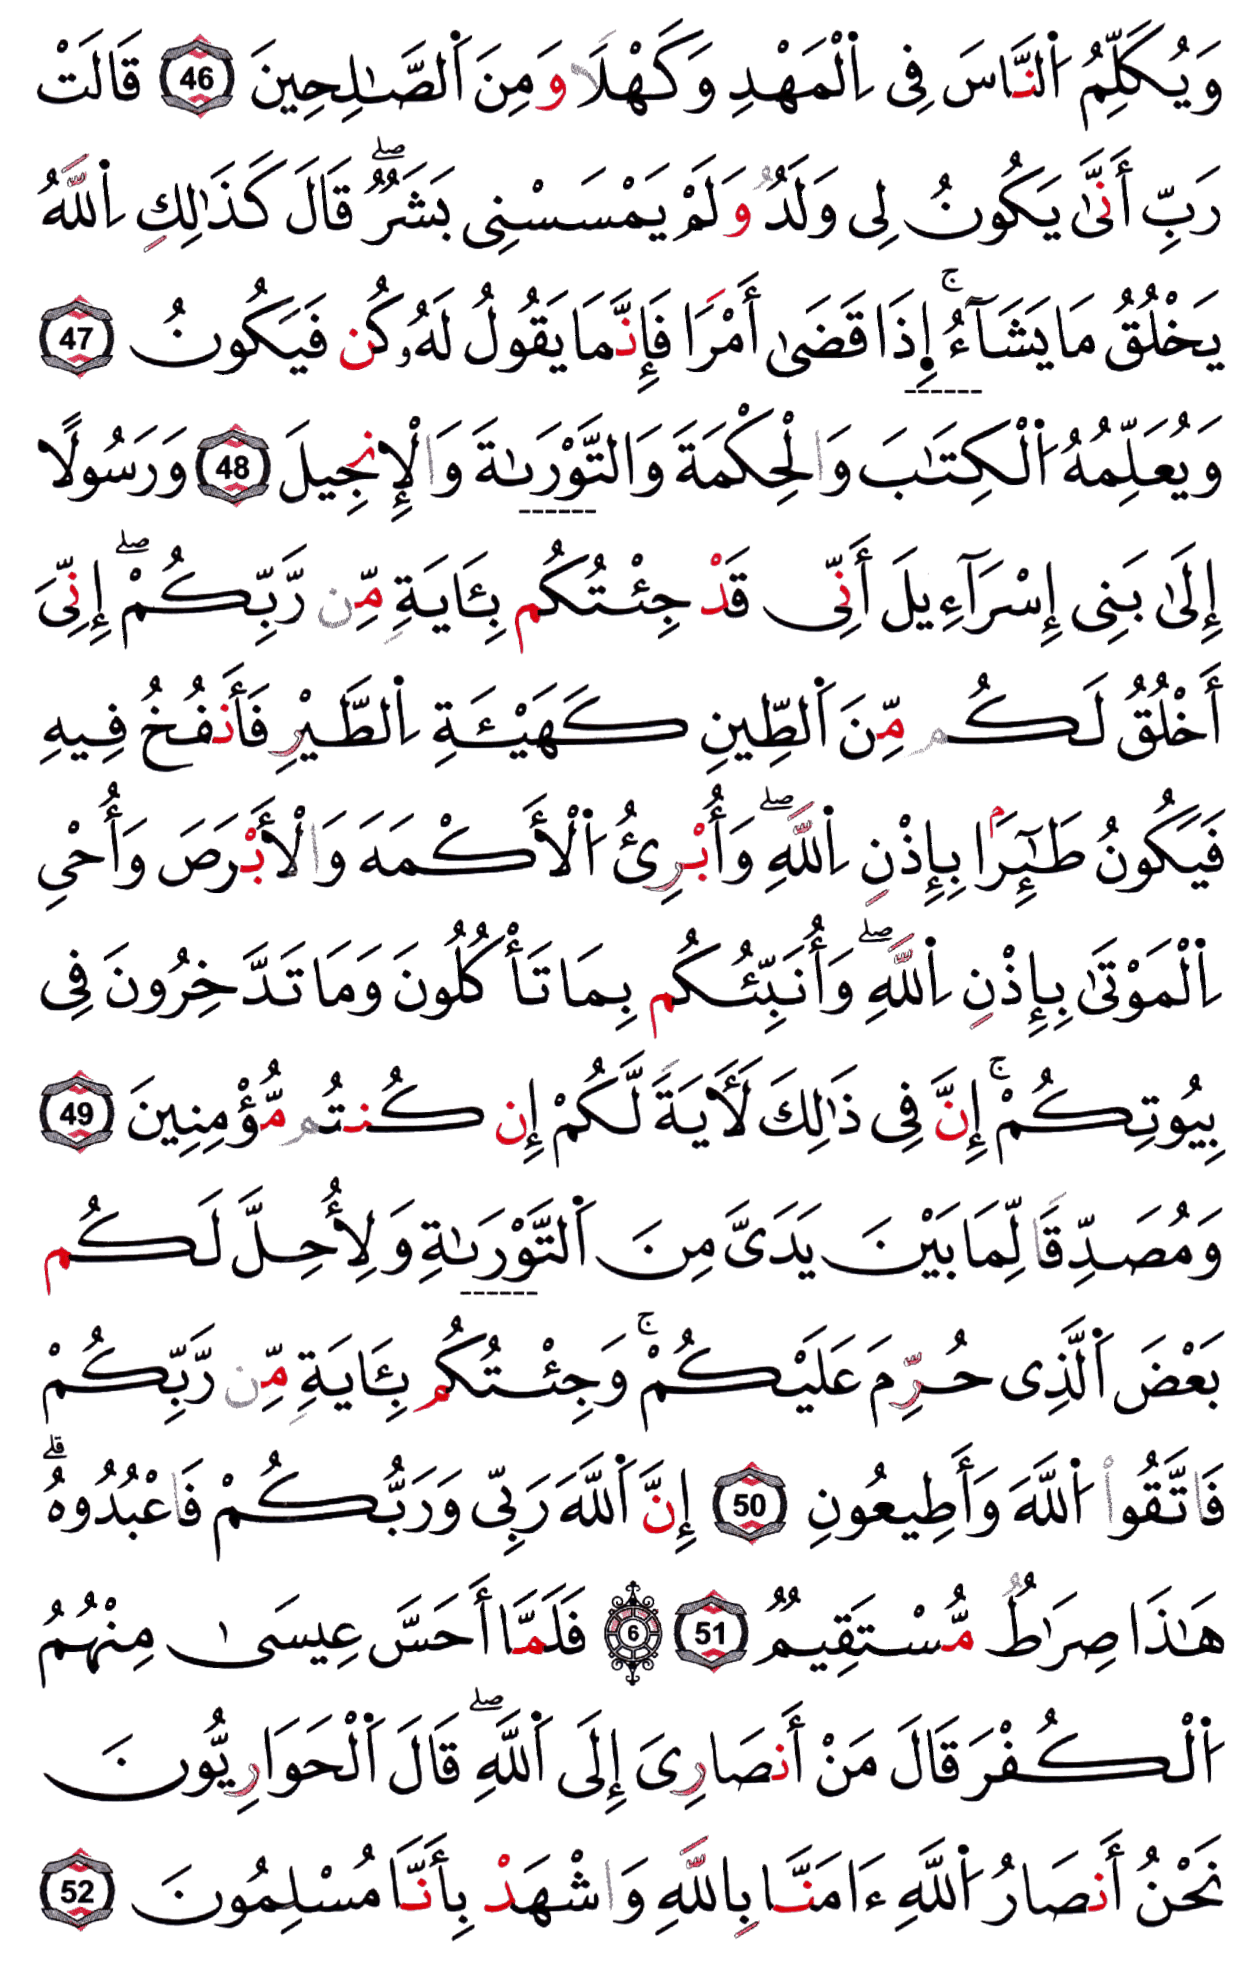 وَيُكَلِّمُ اُ۬لنَّاسَ فِي اِ۬لْمَهْدِ وَكَهْلاٗ وَمِنَ اَ۬لصَّٰلِحِينَ 46 قَالَتْ
رَبِّ أَنَّىٰ يَكُونُ لِي وَلَدٞ وَلَمْ يَمْسَسْنِي بَشَرٞۖ قَالَ كَذَٰلِكِ اِ۬للَّهُ
يَخْلُقُ مَا يَشَآءُۚ إِذَا قَضَىٰ أَمْراٗ فَإِنَّمَا يَقُولُ لَهُۥ كُن فَيَكُونُ 47
وَيُعَلِّمُهُ اُ۬لْكِتَٰبَ وَالْحِكْمَةَ وَالتَّوْرَىٰةَ وَالْإِنجِيلَ 48 وَرَسُولًا
إِلَىٰ بَنِي إِسْرَآءِيلَ أَنِّي قَدْ جِئْتُكُم بِـَٔايَةٖ مِّن رَّبِّكُمْۖ إِنِّيَ
أَخْلُقُ لَكُم مِّنَ اَ۬لطِّينِ كَهَيْـَٔةِ اِ۬لطَّيْرِ فَأَنفُخُ فِيهِ
فَيَكُونُ طَٰٓئِراَۢ بِإِذْنِ اِ۬للَّهِۖ وَأُبْرِئُ اُ۬لْأَكْمَهَ وَالْأَبْرَصَ وَأُحْيِ
اِ۬لْمَوْتَىٰ بِإِذْنِ اِ۬للَّهِۖ وَأُنَبِّئُكُم بِمَا تَأْكُلُونَ وَمَا تَدَّخِرُونَ فِي
بِيُوتِكُمْۚ إِنَّ فِي ذَٰلِكَ لَأٓيَةٗ لَّكُمْ إِن كُنتُم مُّؤْمِنِينَ 49
وَمُصَدِّقاٗ لِّمَا بَيْنَ يَدَيَّ مِنَ اَ۬لتَّوْرَىٰةِ وَلِأُحِلَّ لَكُم
بَعْضَ اَ۬لَّذِي حُرِّمَ عَلَيْكُمْۚ وَجِئْتُكُم بِـَٔايَةٖ مِّن رَّبِّكُمْ
فَاتَّقُواْ اُ۬للَّهَ وَأَطِيعُونِ 50 إِنَّ اَ۬للَّهَ رَبِّي وَرَبُّكُمْ فَاعْبُدُوهُۗ
هَٰذَا صِرَٰطٞ مُّسْتَقِيمٞ 51 6 فَلَمَّا أَحَسَّ عِيسَىٰ مِنْهُمُ
اُ۬لْكُفْرَ قَالَ مَنْ أَنصَارِيَ إِلَى اَ۬للَّهِۖ قَالَ اَ۬لْحَوَارِيُّونَ
نَحْنُ أَنصَارُ اُ۬للَّهِ ءَامَنَّا بِاللَّهِ وَاشْهَدْ بِأَنَّا مُسْلِمُونَ 52